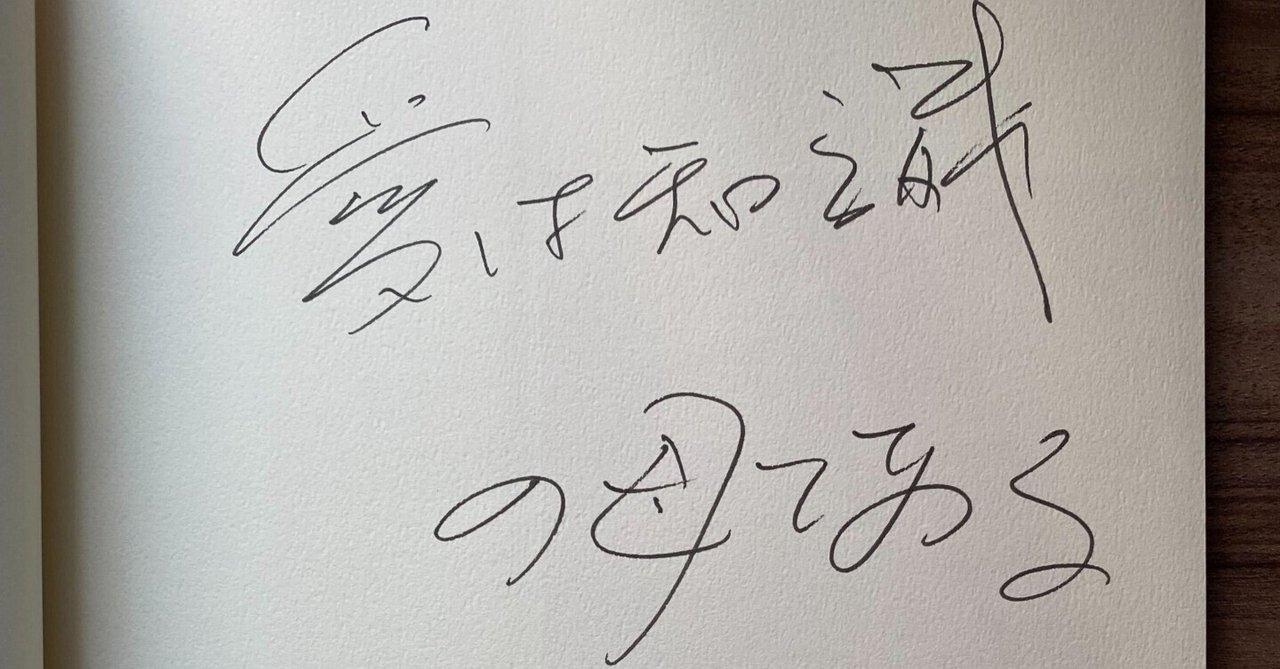 愛は知識
の母である